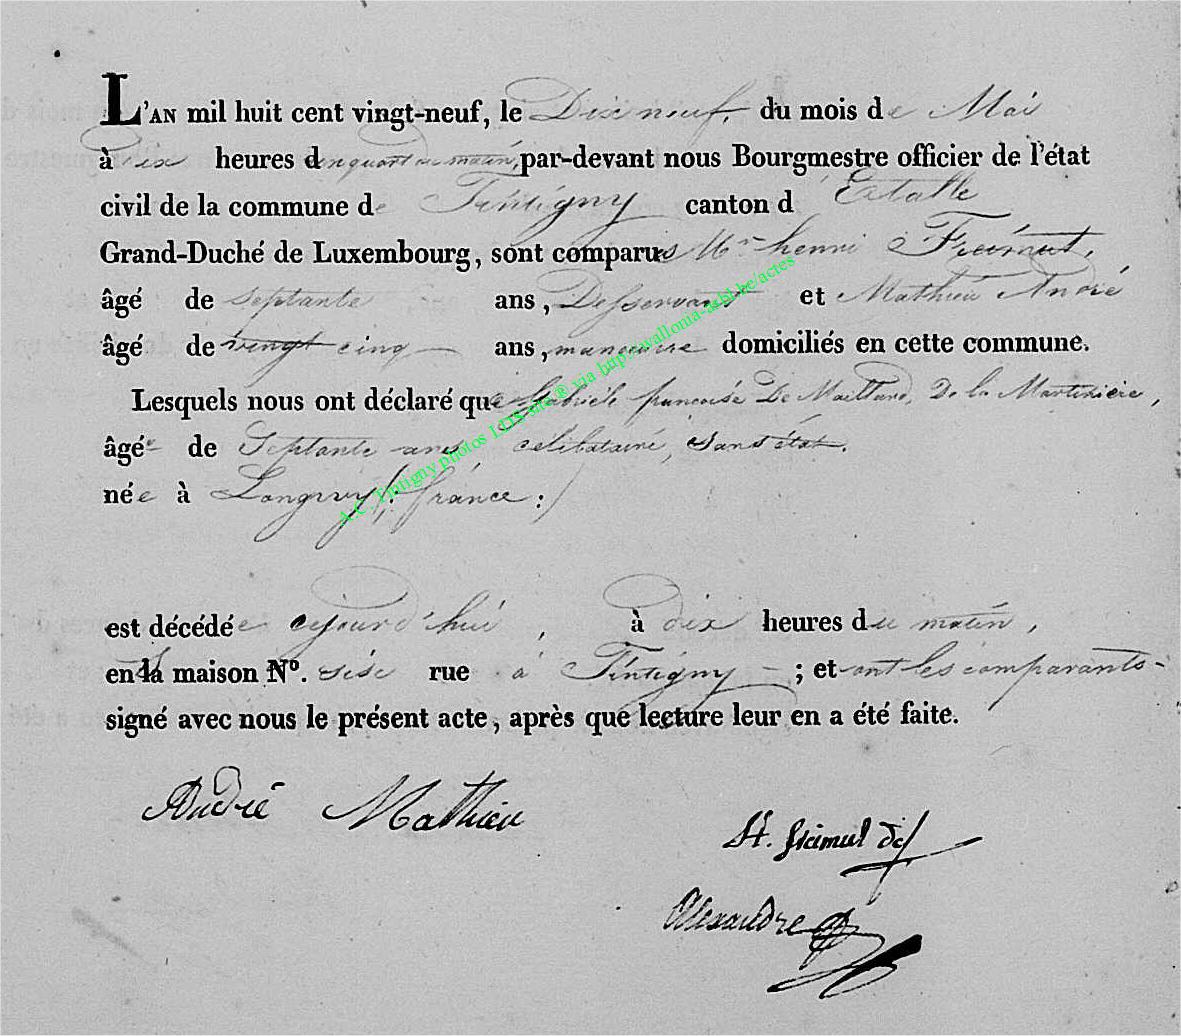 L'AN mil huit cent vingt-neuf, le Dix neuf, du mois de Mai
à Dix heures d un quart du matin, par-devant nous Bourgmestre officier de l'état
civil de la commune de Tintigny canton d Etalle
Grand-Duché de Luxembourg, sont comparus Mr henri Freimut,
âgé de septante ans, Desservant et Mathieu André
âgé de vingt cinq ans, manœuvre domiciliés en cette commune.
Lesquels nous ont déclaré que Gabriele françoise De Maillard, De la Martiniere,
âgée de Septante ans celibataire, sans état.
née à Longwy /: france :/
est décédée aujourd'hui, à dix heures du matin,
en la maison No. sise rue à Tintigny ; et ont les comparants
signé avec nous le présent acte, après que lecture leur en a été faite.
André Mathieu
H. freimut
Alexandre
A.C. Tintigny photos LTIS sate® via http://wallonia-asbl.be/actes